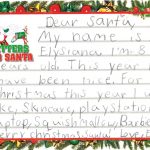 Dear Santa,
My name is
LETTERS
TO SANTA
Elysiana I'm 8
years old. This year I
have been nice. For
Christmas this year I w
like, Skincare, playstation
laptop, Squishmallow, Barbie
Merry christmas Santa! love